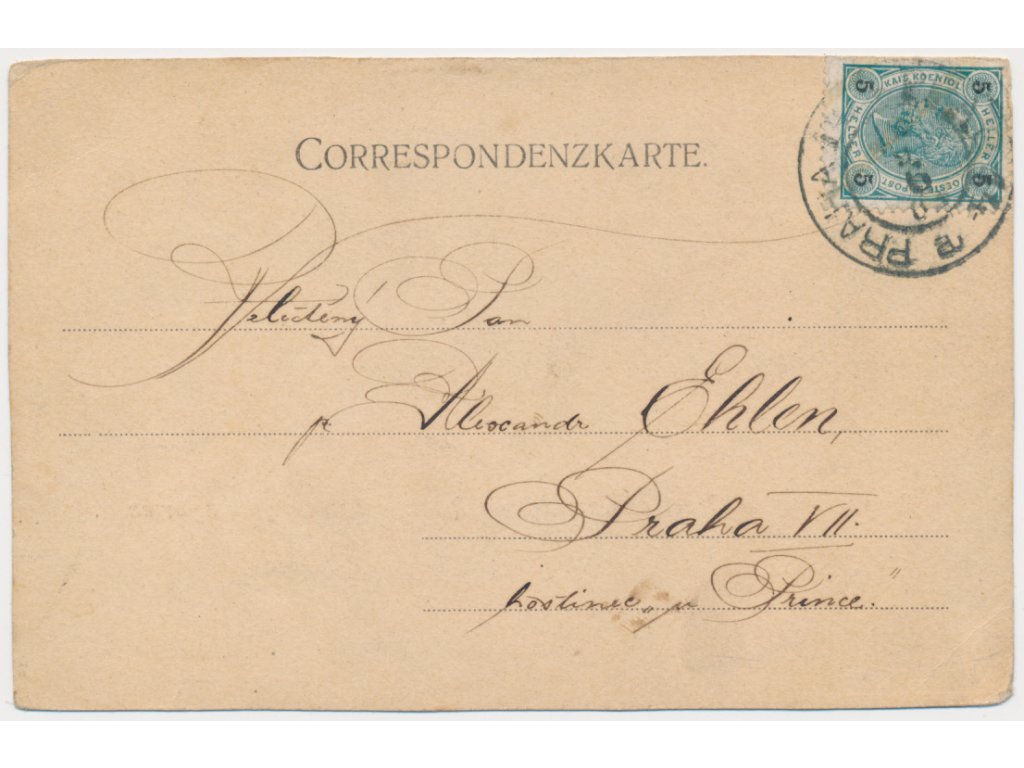 CORRESPONDENZKARTE.
KAIS. KOENIGL.
5 HELLER 5
5 HELLER 5
OESTERR. POST
PRAHA
Velectěný Pan
p. Alexandr Ehlen,
Praha VII.
hostinec „u Prince."